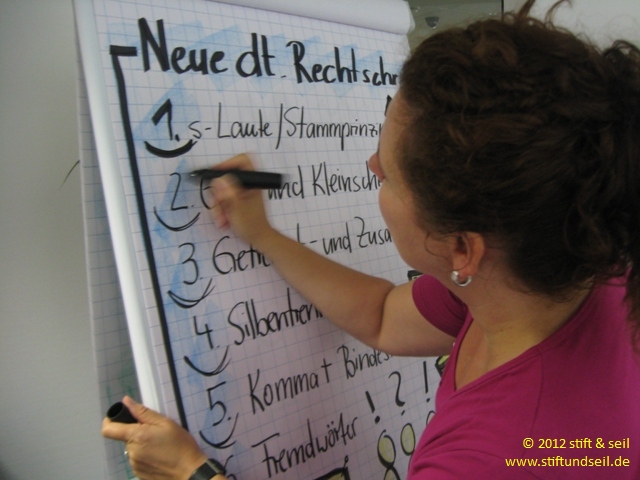 Neue dt. Rechtschr
1. s-Laute/Stammprinzi
2. G und Kleinsch
3. Getrennt- und Zusa
4. Silbentren
5. Komma + Bindes
6 Fremdwörter ! ? !
© 2012 stift & seil
www.stiftundseil.de